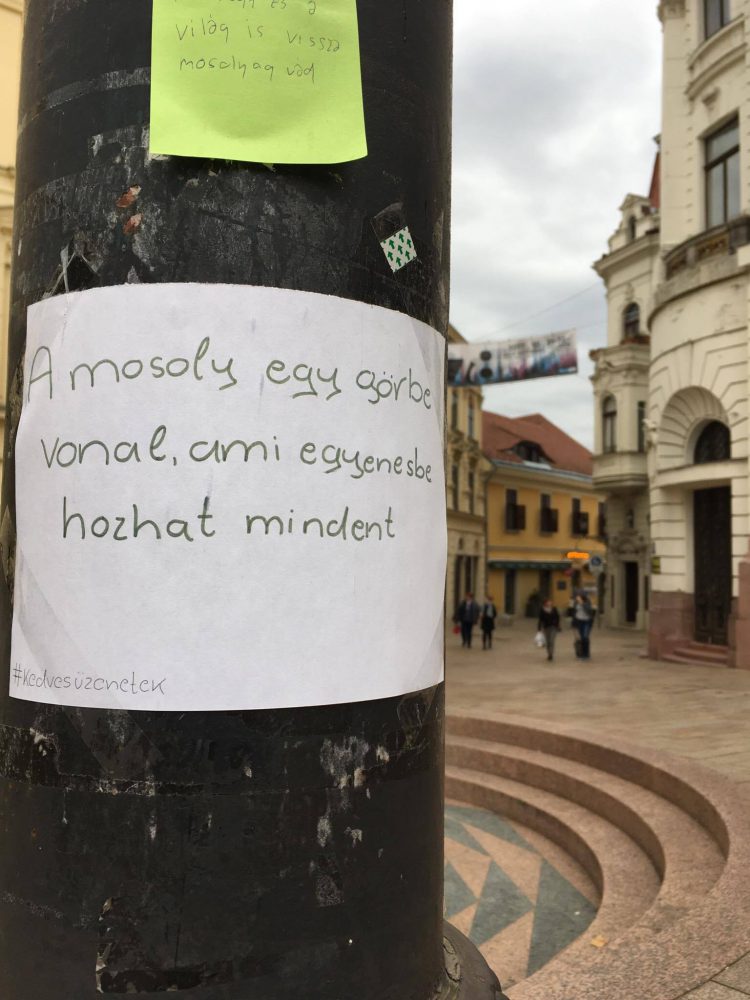 világ is vissza
mosolyog rád
A mosoly egy görbe
vonal, ami egyenesbe
hozhat mindent
#Kedvesüzenetek